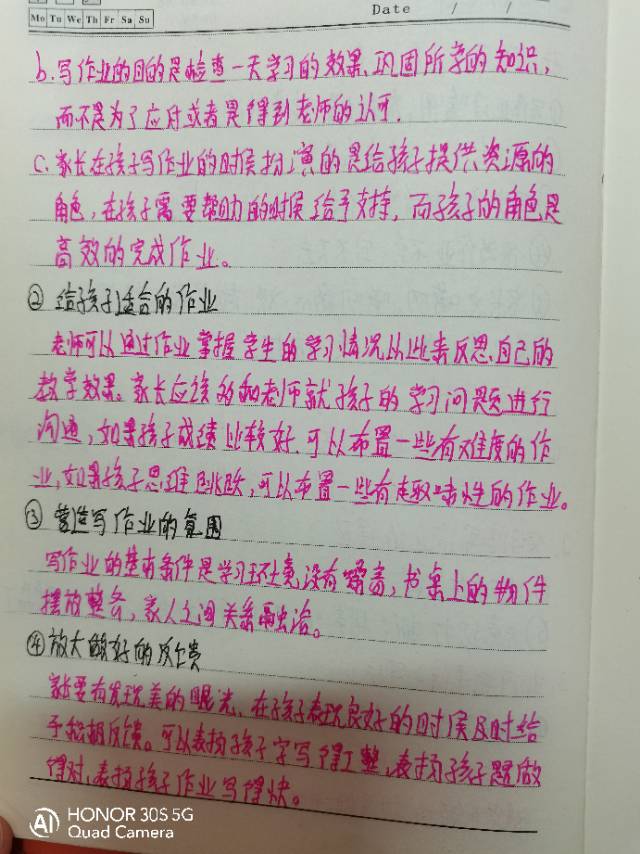 Date / /
Mo Tu We Th Fr Sa Su
b.写作业的目的是检查一天学习的效果,巩固所学的知识,
而不是为了应付或者是得到老师的认可.
c.家长在孩子写作业的时候扮演的是给孩子提供资源的
角色,在孩子需要帮助的时候给予支持,而孩子的角色是
高效的完成作业。
② 给孩子适合的作业
老师可以通过作业掌握学生的学习情况以此来反思自己的
教学效果。家长应该多和老师就孩子的学习问题进行
沟通,如果孩子成绩比较好,可以布置一些有难度的作
业,如果孩子思维跳跃,可以布置一些有趣味性的作业。
③ 营造写作业的氛围
写作业的基本条件是学习环境没有噪音,书桌上的物件
摆放整齐,家人之间关系融洽。
④放大做好的反馈
家长要有发现美的眼光,在孩子表现良好的时候及时给
予积极反馈。可以表扬孩子字写得工整,表扬孩子题做
得对,表扬孩子作业写得快。
AI HONOR 30S 5G
Quad Camera